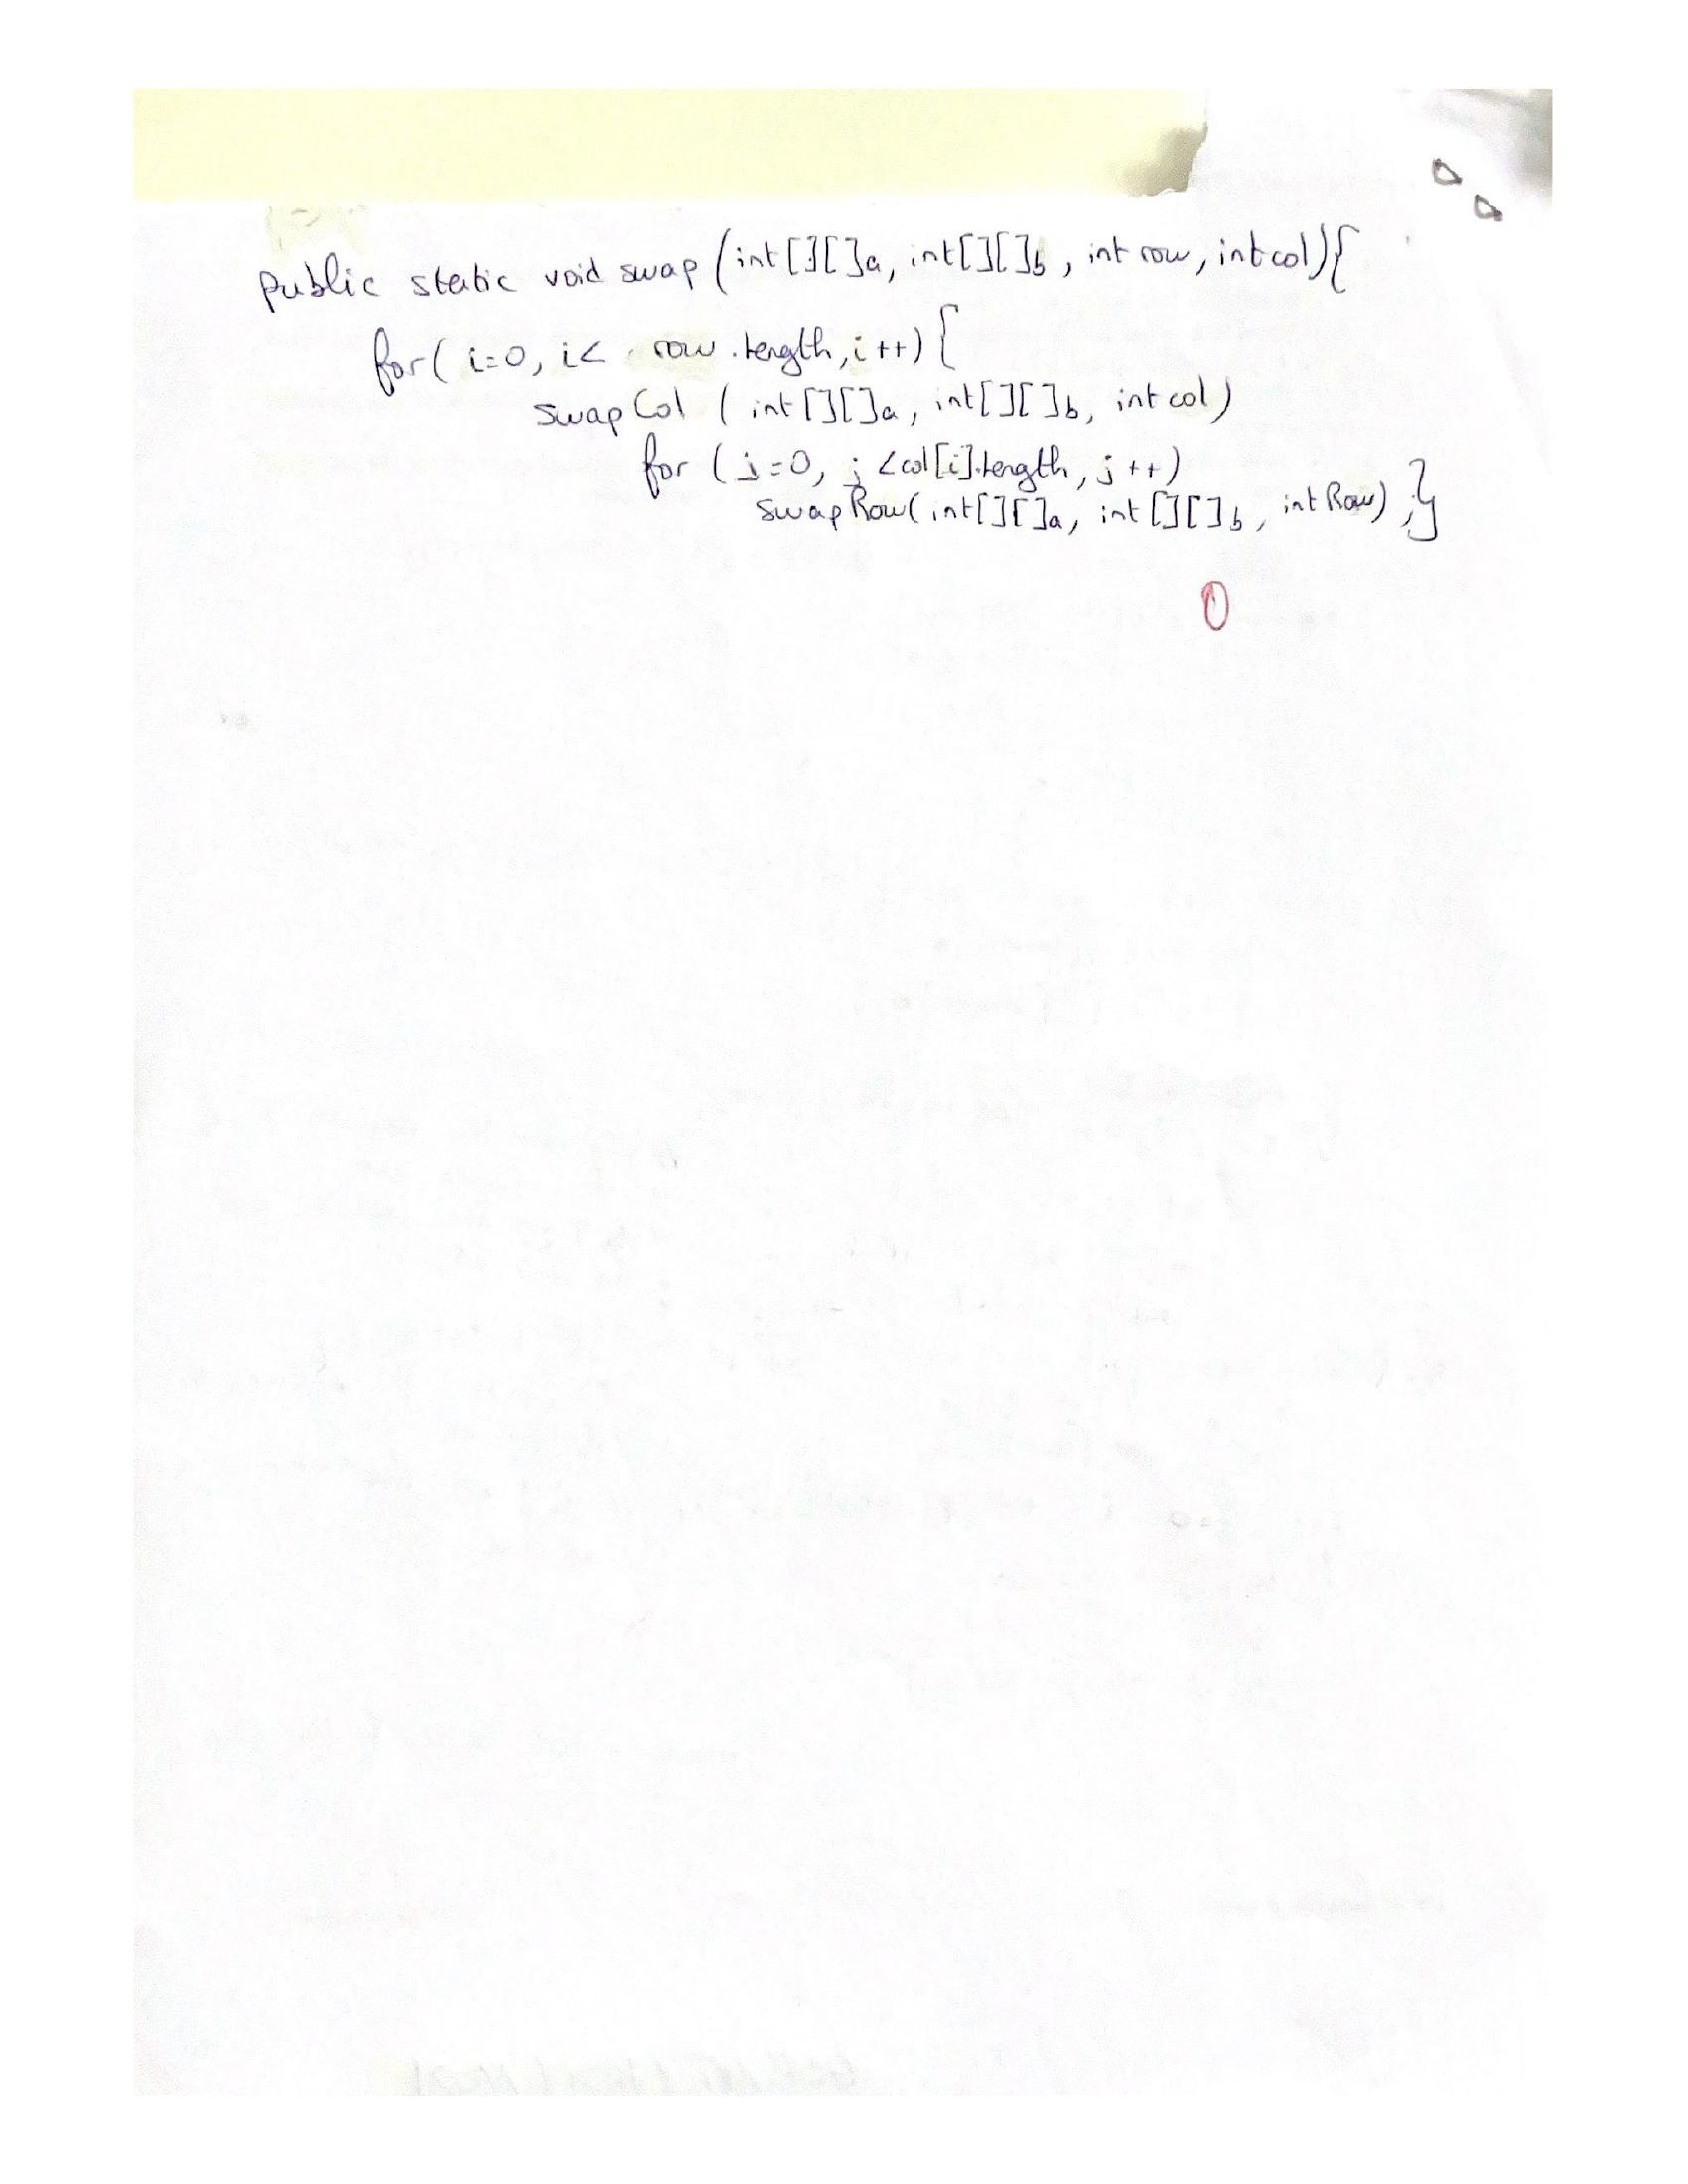 public static void swap (int[][]a, int[][]b, int row, int col){
for( i=0, i< row.length, i++) {
swapCol ( int[][]a, int[][]b, int col)
for ( j=0, j <col[i].length, j++)
swapRow( int[][]a, int[][]b, int Row) ;}
0